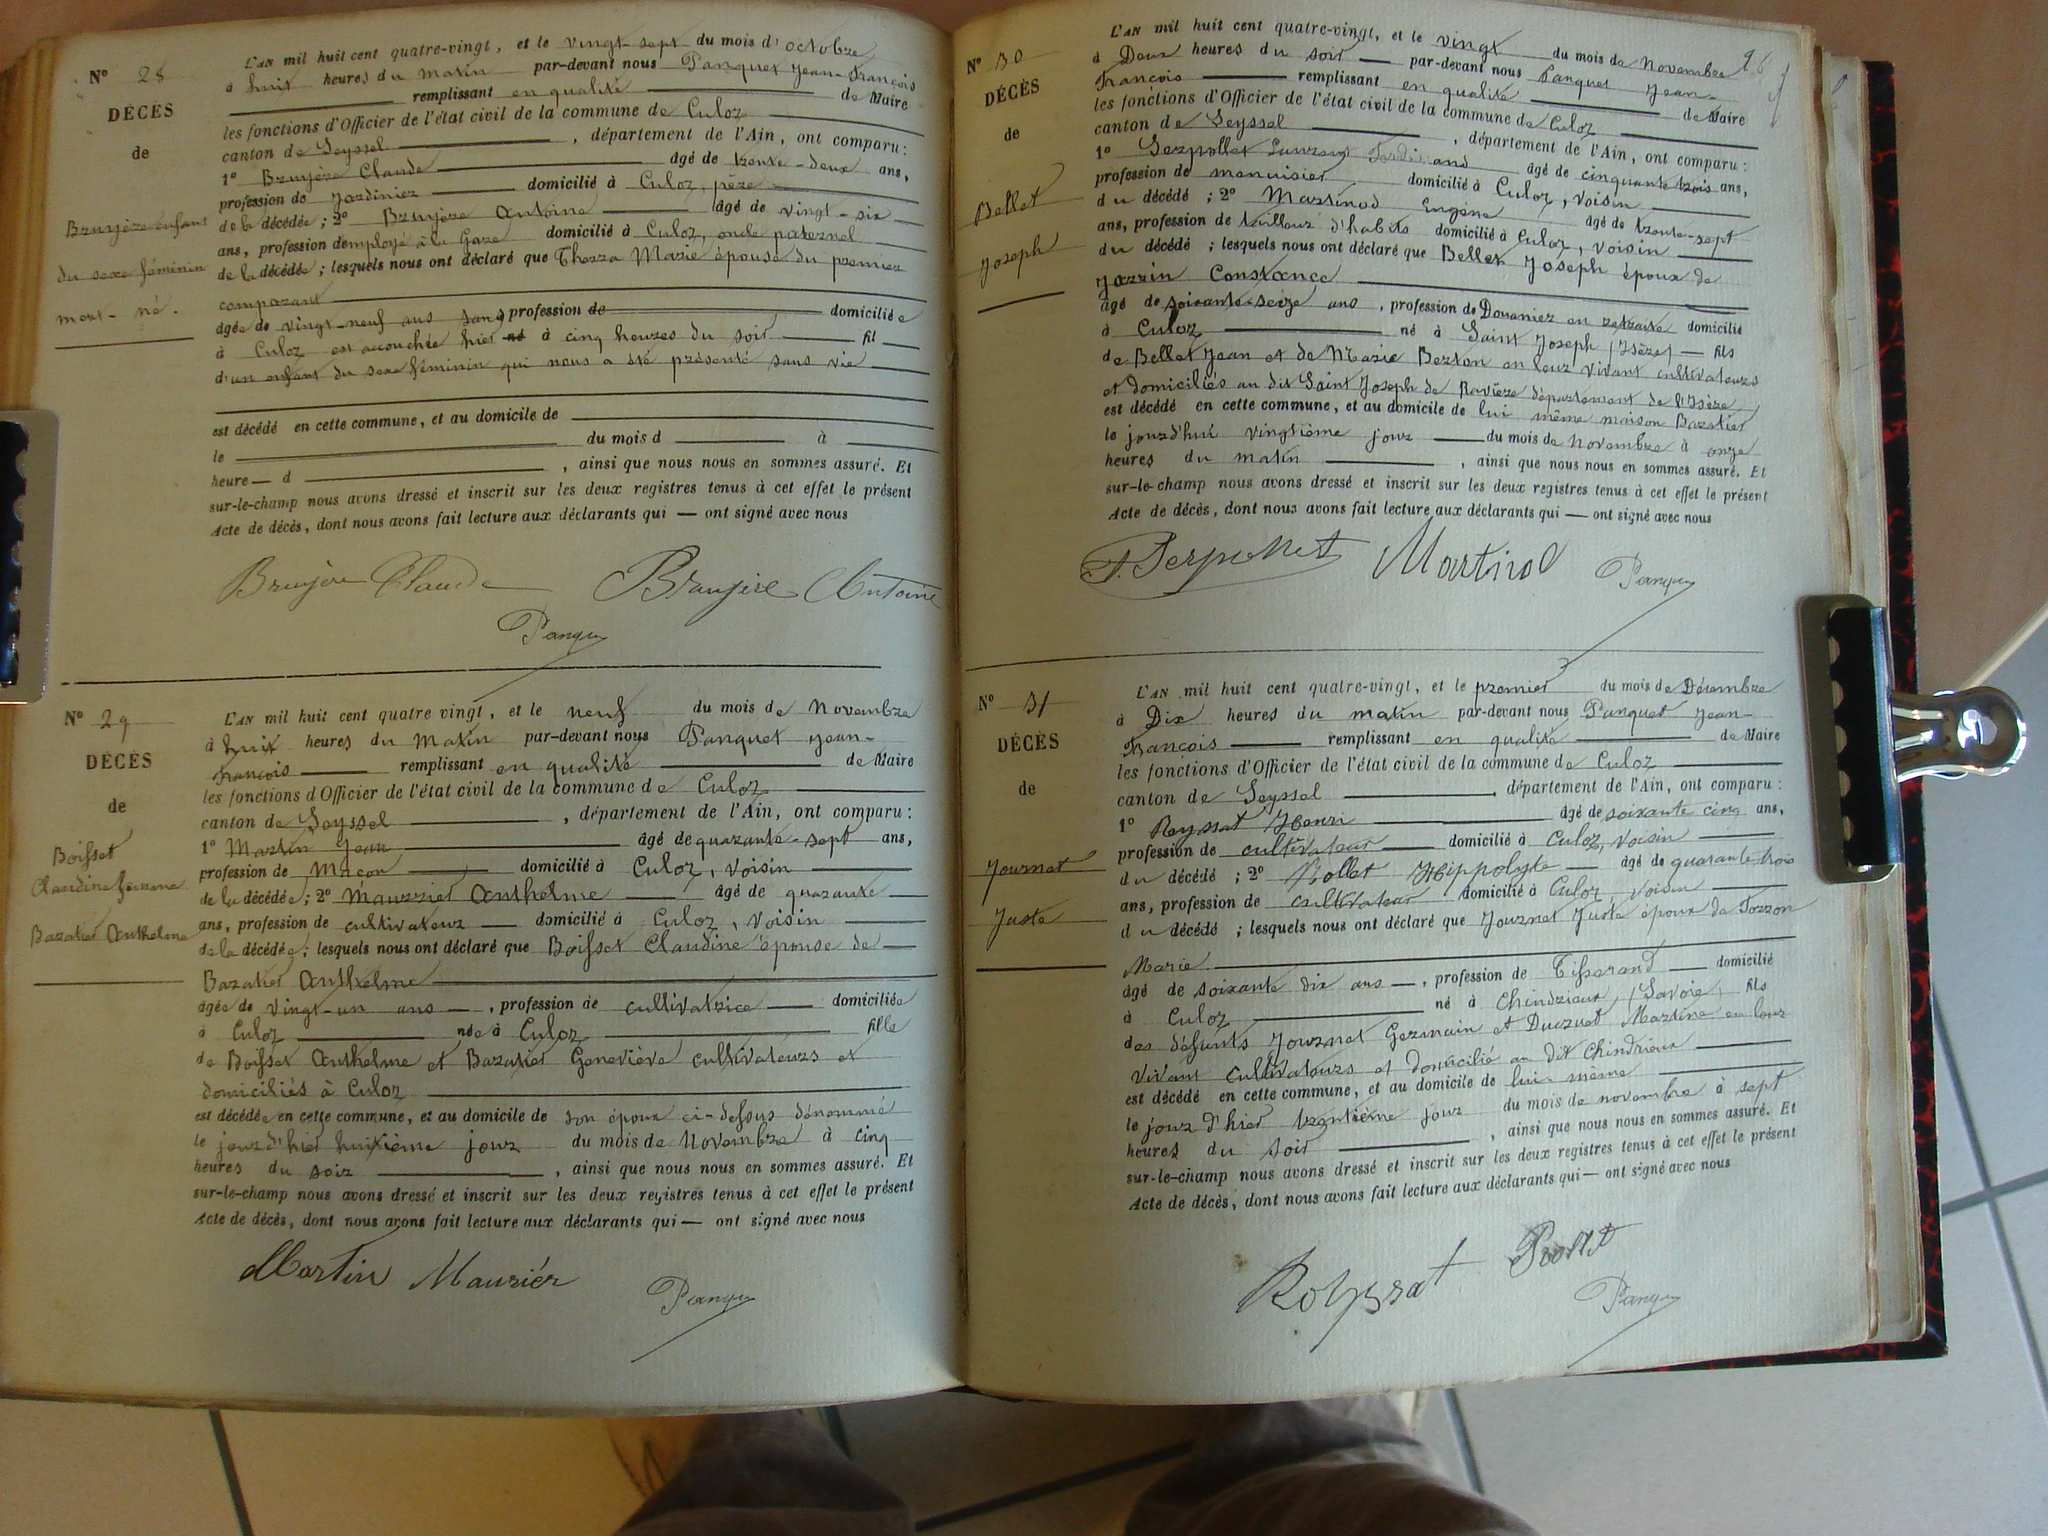 N° 28
DÉCÈS
de
Bruyère enfant
du sexe féminin
mort-né.
L'AN mil huit cent quatre-vingt, et le vingt-sept du mois d'octobre
à huit heures du matin par-devant nous Panquet Jean-François
remplissant en qualité de Maire
les fonctions d'Officier de l'état civil de la commune de Culoz
canton de Seyssel, département de l'Ain, ont comparu:
1° Bruyère Claude âgé de trente-deux ans,
profession de Jardinier domicilié à Culoz, père
de la décédée; 2° Bruyère Antoine âgé de vingt-six
ans, profession d'employé à la Gare domicilié à Culoz, oncle paternel
de la décédée; lesquels nous ont déclaré que Thozza Marie épouse du premier
comparant
âgée de vingt-neuf ans sans profession de domiciliée
à Culoz est accouchée hier né à cinq heures du soir fil
d'un enfant du sexe féminin qui nous a été présenté sans vie
est décédé en cette commune, et au domicile de
le du mois d à
heure d, ainsi que nous nous en sommes assuré. Et
sur-le-champ nous avons dressé et inscrit sur les deux registres tenus à cet effet le présent
Acte de décès, dont nous avons fait lecture aux déclarants qui — ont signé avec nous
Bruyère Claude Bruyère Antoine
Panquet
N° 29
DÉCÈS
de
Boisset
Claudine femme
Bazatier Anthelme
L'AN mil huit cent quatre vingt, et le neuf du mois de Novembre
à huit heures du Matin par-devant nous Panquet Jean-
François remplissant en qualité de Maire
les fonctions d'Officier de l'état civil de la commune de Culoz
canton de Seyssel, département de l'Ain, ont comparu:
1° Martin Jean âgé de quarante-sept ans,
profession de Maçon domicilié à Culoz, voisin
de la décédée; 2° Maurrier Anthelme âgé de quarante
ans, profession de cultivateur domicilié à Culoz, voisin
de la décédée; lesquels nous ont déclaré que Boisset Claudine épouse de
Bazatier Anthelme
âgée de vingt-un ans, profession de cultivatrice domiciliée
à Culoz née à Culoz fille
de Boisset Anthelme et Bazatier Geneviève cultivateurs et
domiciliés à Culoz
est décédée en cette commune, et au domicile de son époux ci-dessus dénommé
le jour d'hier huitième jour du mois de Novembre à cinq
heures du soir, ainsi que nous nous en sommes assuré. Et
sur-le-champ nous avons dressé et inscrit sur les deux registres tenus à cet effet le présent
Acte de décès, dont nous avons fait lecture aux déclarants qui — ont signé avec nous
Martin Maurier
Panquet
N° 30
DÉCÈS
de
Bellet
Joseph
L'AN mil huit cent quatre-vingt, et le vingt du mois de Novembre
à Deux heures du soir par-devant nous Panquet Jean-
François remplissant en qualité de Maire
les fonctions d'Officier de l'état civil de la commune de Culoz
canton de Seyssel, département de l'Ain, ont comparu:
1° Serpollet Laurent Ferdinand âgé de cinquante trois ans,
profession de menuisier domicilié à Culoz, voisin
du décédé; 2° Martinod Eugène âgé de trente-sept
ans, profession de tailleur d'habits domicilié à Culoz, voisin
du décédé; lesquels nous ont déclaré que Bellet Joseph époux de
Jarrin Constance
âgé de soixante-seize ans, profession de Douanier en retraite domicilié
à Culoz né à Saint Joseph (Isère) fils
de Bellet Jean et de Marie Berton en leur vivant cultivateurs
et domiciliés au dit Saint Joseph de Rivière département de l'Isère
est décédé en cette commune, et au domicile de lui même maison Bazatier
le jourd'hui vingtième jour du mois de novembre à onze
heures du matin, ainsi que nous nous en sommes assuré. Et
sur-le-champ nous avons dressé et inscrit sur les deux registres tenus à cet effet le présent
Acte de décès, dont nous avons fait lecture aux déclarants qui — ont signé avec nous
Serpollet Martinod Panquet
N° 31
DÉCÈS
de
Journet
Juste
L'AN mil huit cent quatre-vingt, et le premier du mois de Décembre
à Dix heures du matin par-devant nous Panquet Jean-
François remplissant en qualité de Maire
les fonctions d'Officier de l'état civil de la commune de Culoz
canton de Seyssel, département de l'Ain, ont comparu:
1° Reyssat Henri âgé de soixante cinq ans,
profession de cultivateur domicilié à Culoz, voisin
du décédé; 2° Rollet Hippolyte âgé de quarante-trois
ans, profession de cultivateur domicilié à Culoz, voisin
du décédé; lesquels nous ont déclaré que Journet Juste époux de Torron
Marie
âgé de soixante dix ans, profession de Tisserand domicilié
à Culoz né à Chindrieux, (Savoie) fils
des défunts Journet Germain et Ducruet Martine en leur
vivant cultivateurs et domicilié au dit Chindrieux
est décédé en cette commune, et au domicile de lui-même
le jour d'hier trentième jour du mois de novembre à sept
heures du soir, ainsi que nous nous en sommes assuré. Et
sur-le-champ nous avons dressé et inscrit sur les deux registres tenus à cet effet le présent
Acte de décès, dont nous avons fait lecture aux déclarants qui — ont signé avec nous
Panquet